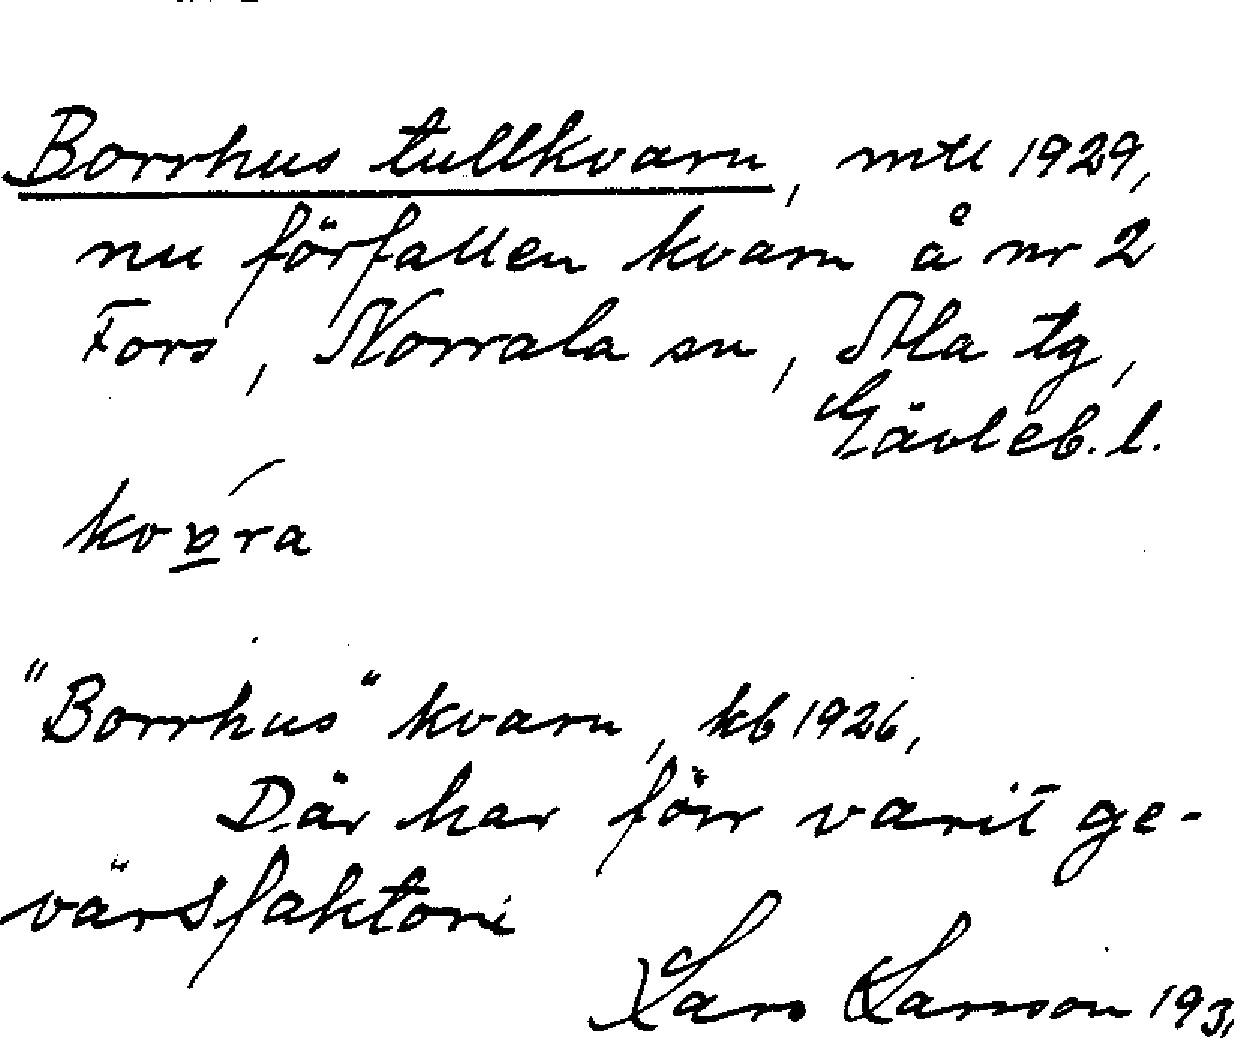 Borrhus tullkvarn, mtl 1929,
nu förfallen kvarn å nr 2
Fors, Norrala sn, Ala tg,
Gävleb. l.
"Borrhus" kvarn, kb 1926,
Där har förr varit ge-
värsfaktori
Lars Larsson 193